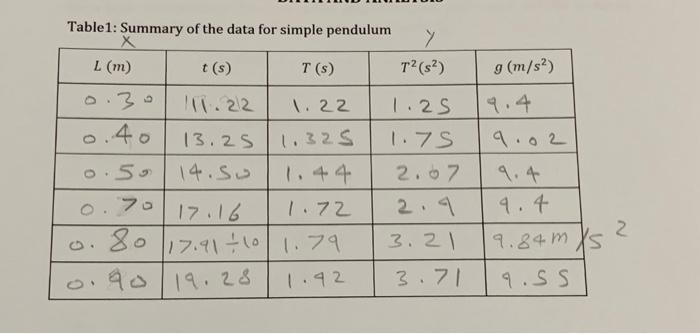 Table1: Summary of the data for simple pendulum
x y
L (m) t (s) T (s) T²(s²) g (m/s²)
0.30 11.22 1.22 1.25 9.4
0.40 13.25 1.325 1.75 9.02
0.50 14.50 1.44 2.07 9.4
0.70 17.16 1.72 2.9 9.4
0.80 17.91÷10 1.79 3.21 9.84m/s²
0.90 19.28 1.92 3.71 9.55